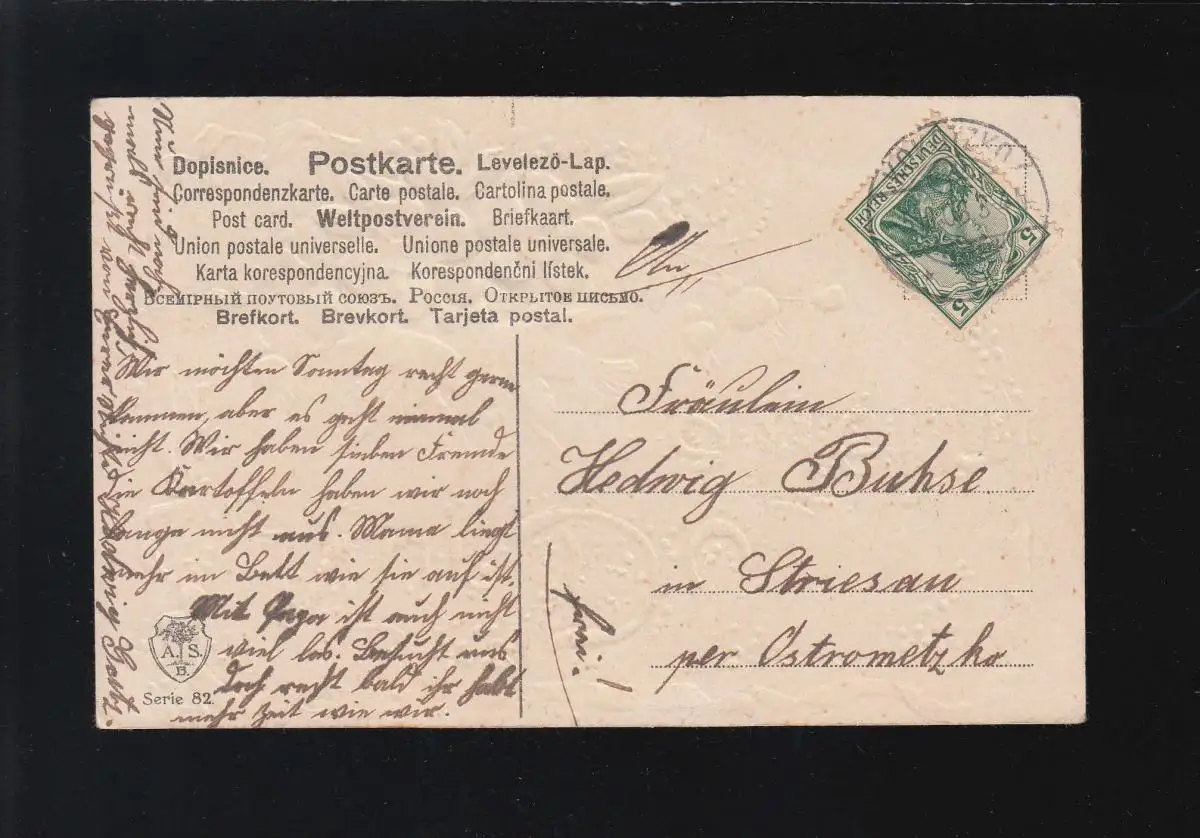 Dopisnice. Postkarte. Levelező-Lap.
Correspondenzkarte. Carte postale. Cartolina postale.
Post card. Weltpostverein. Briefkaart.
Union postale universelle. Unione postale universale.
Karta korespondencyjna. Korespondenční lístek.
Всемірный почтовый союзъ. Россія. Открытое письмо.
Brefkort. Brevkort. Tarjeta postal.
An
DEUTSCHES REICH
5 5
Wir möchten Sonntag recht gerne
kommen, aber es geht einmal
nicht. Wir haben sieben Fremde
die Kartoffeln haben wir noch
lange nicht aus. Mama liegt
mehr im Bett wie sie auf ist.
Mit Papa ist auch nicht
viel los. Besucht uns
doch recht bald ihr habt
mehr Zeit wie wir.
Fräulein
Hedwig Buhse
in Striesau
per Ostrometzko
frei!
A. S.
B.
Serie 82.